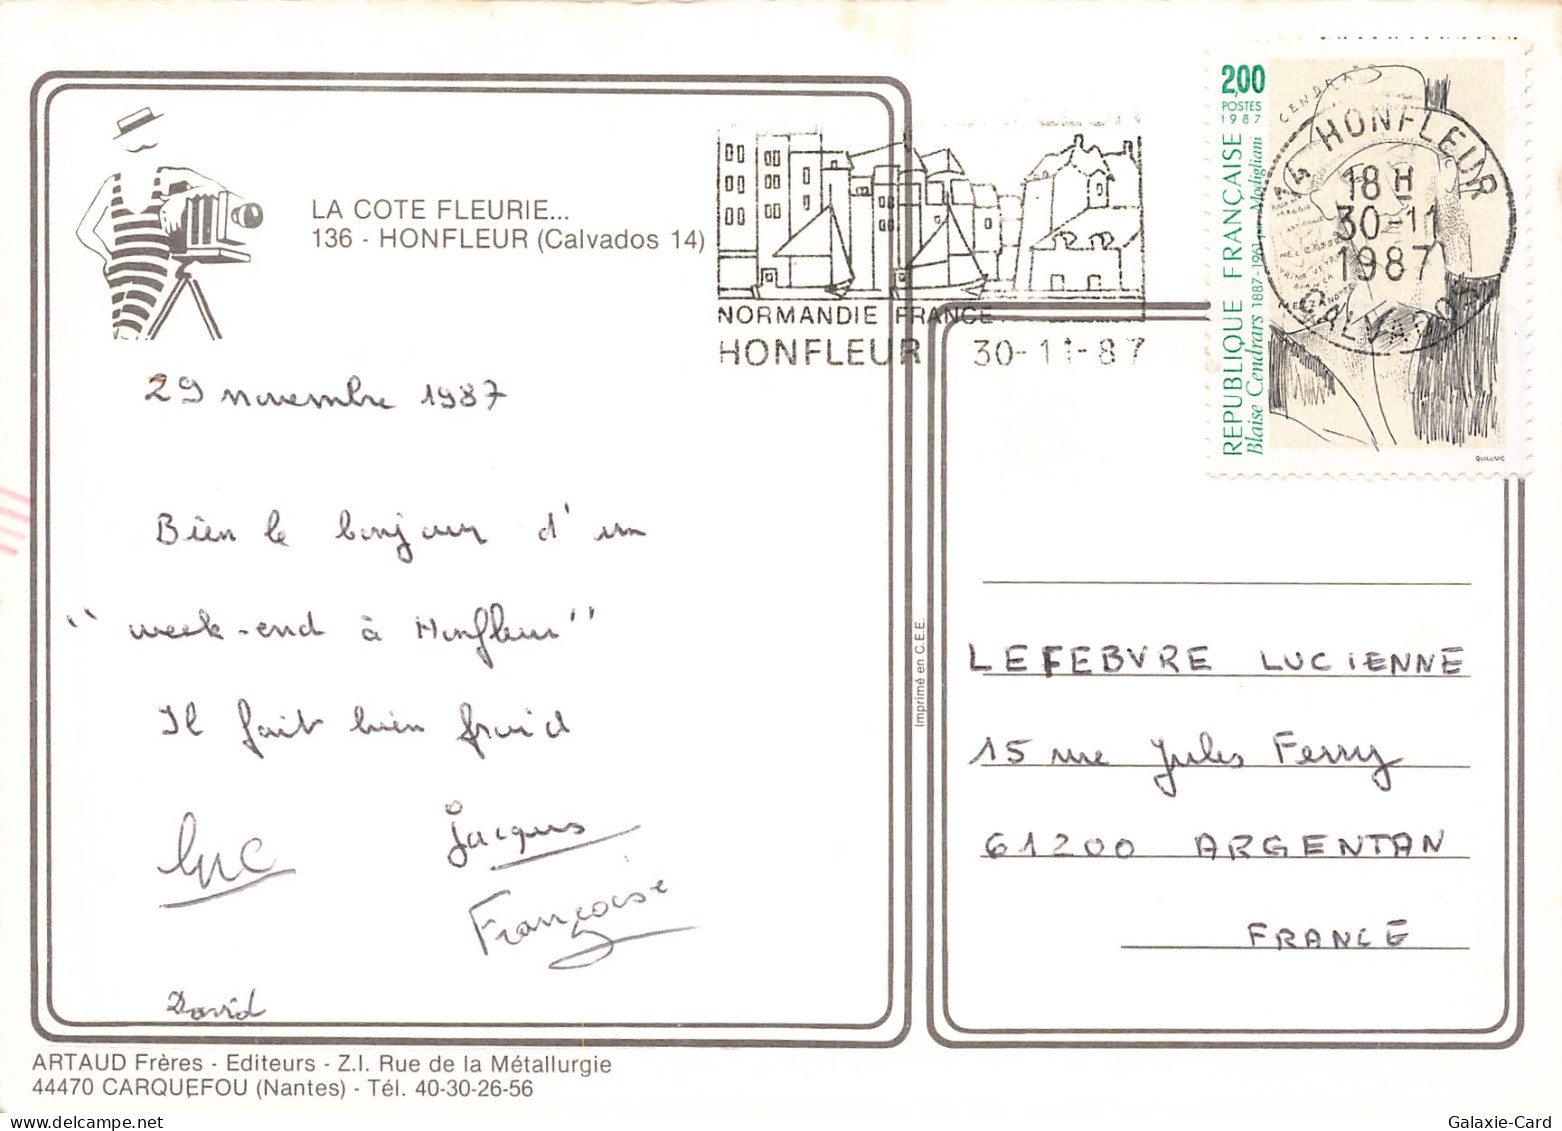 LA COTE FLEURIE...
136 - HONFLEUR (Calvados 14)
29 novembre 1987
Bien le bonjour d'un
"week-end à Honfleur"
Il fait bien froid
Luc
Jacques
Françoise
David
ARTAUD Frères - Editeurs - Z.I. Rue de la Métallurgie
44470 CARQUEFOU (Nantes) - Tél. 40-30-26-56
Imprimé en C.E.E.
NORMANDIE FRANCE
HONFLEUR 30-11-87
2,00
POSTES
1987
REPUBLIQUE FRANÇAISE
Blaise Cendrars 1887-1961 par Modigliani
CENDRARS
QUILLIVIC
14 HONFLEUR
18 H
30-11
1987
CALVADOS
LEFEBVRE LUCIENNE
15 rue Jules Ferry
61200 ARGENTAN
FRANCE
Galaxie-Card
delcampe.net